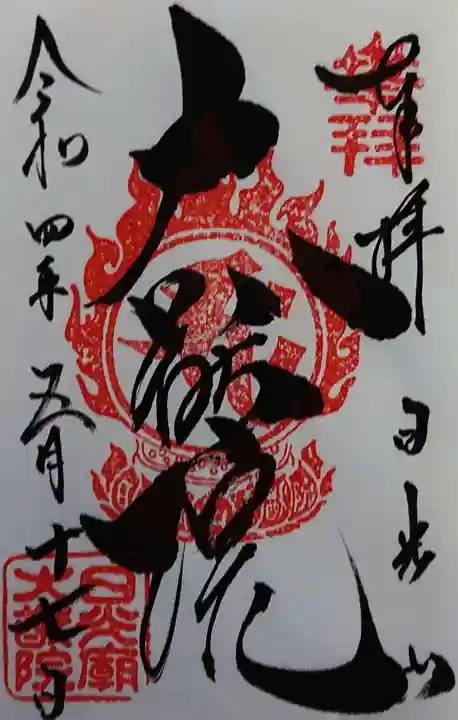 奉拝 日光山
奉拝
大猷院
令和四年五月十七日
日光廟
大猷院